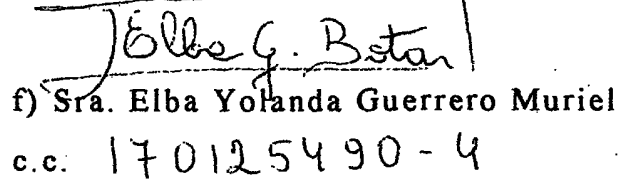 Elba G. Botar
f) Sra. Elba Yolanda Guerrero Muriel
c.c. 170125490-4